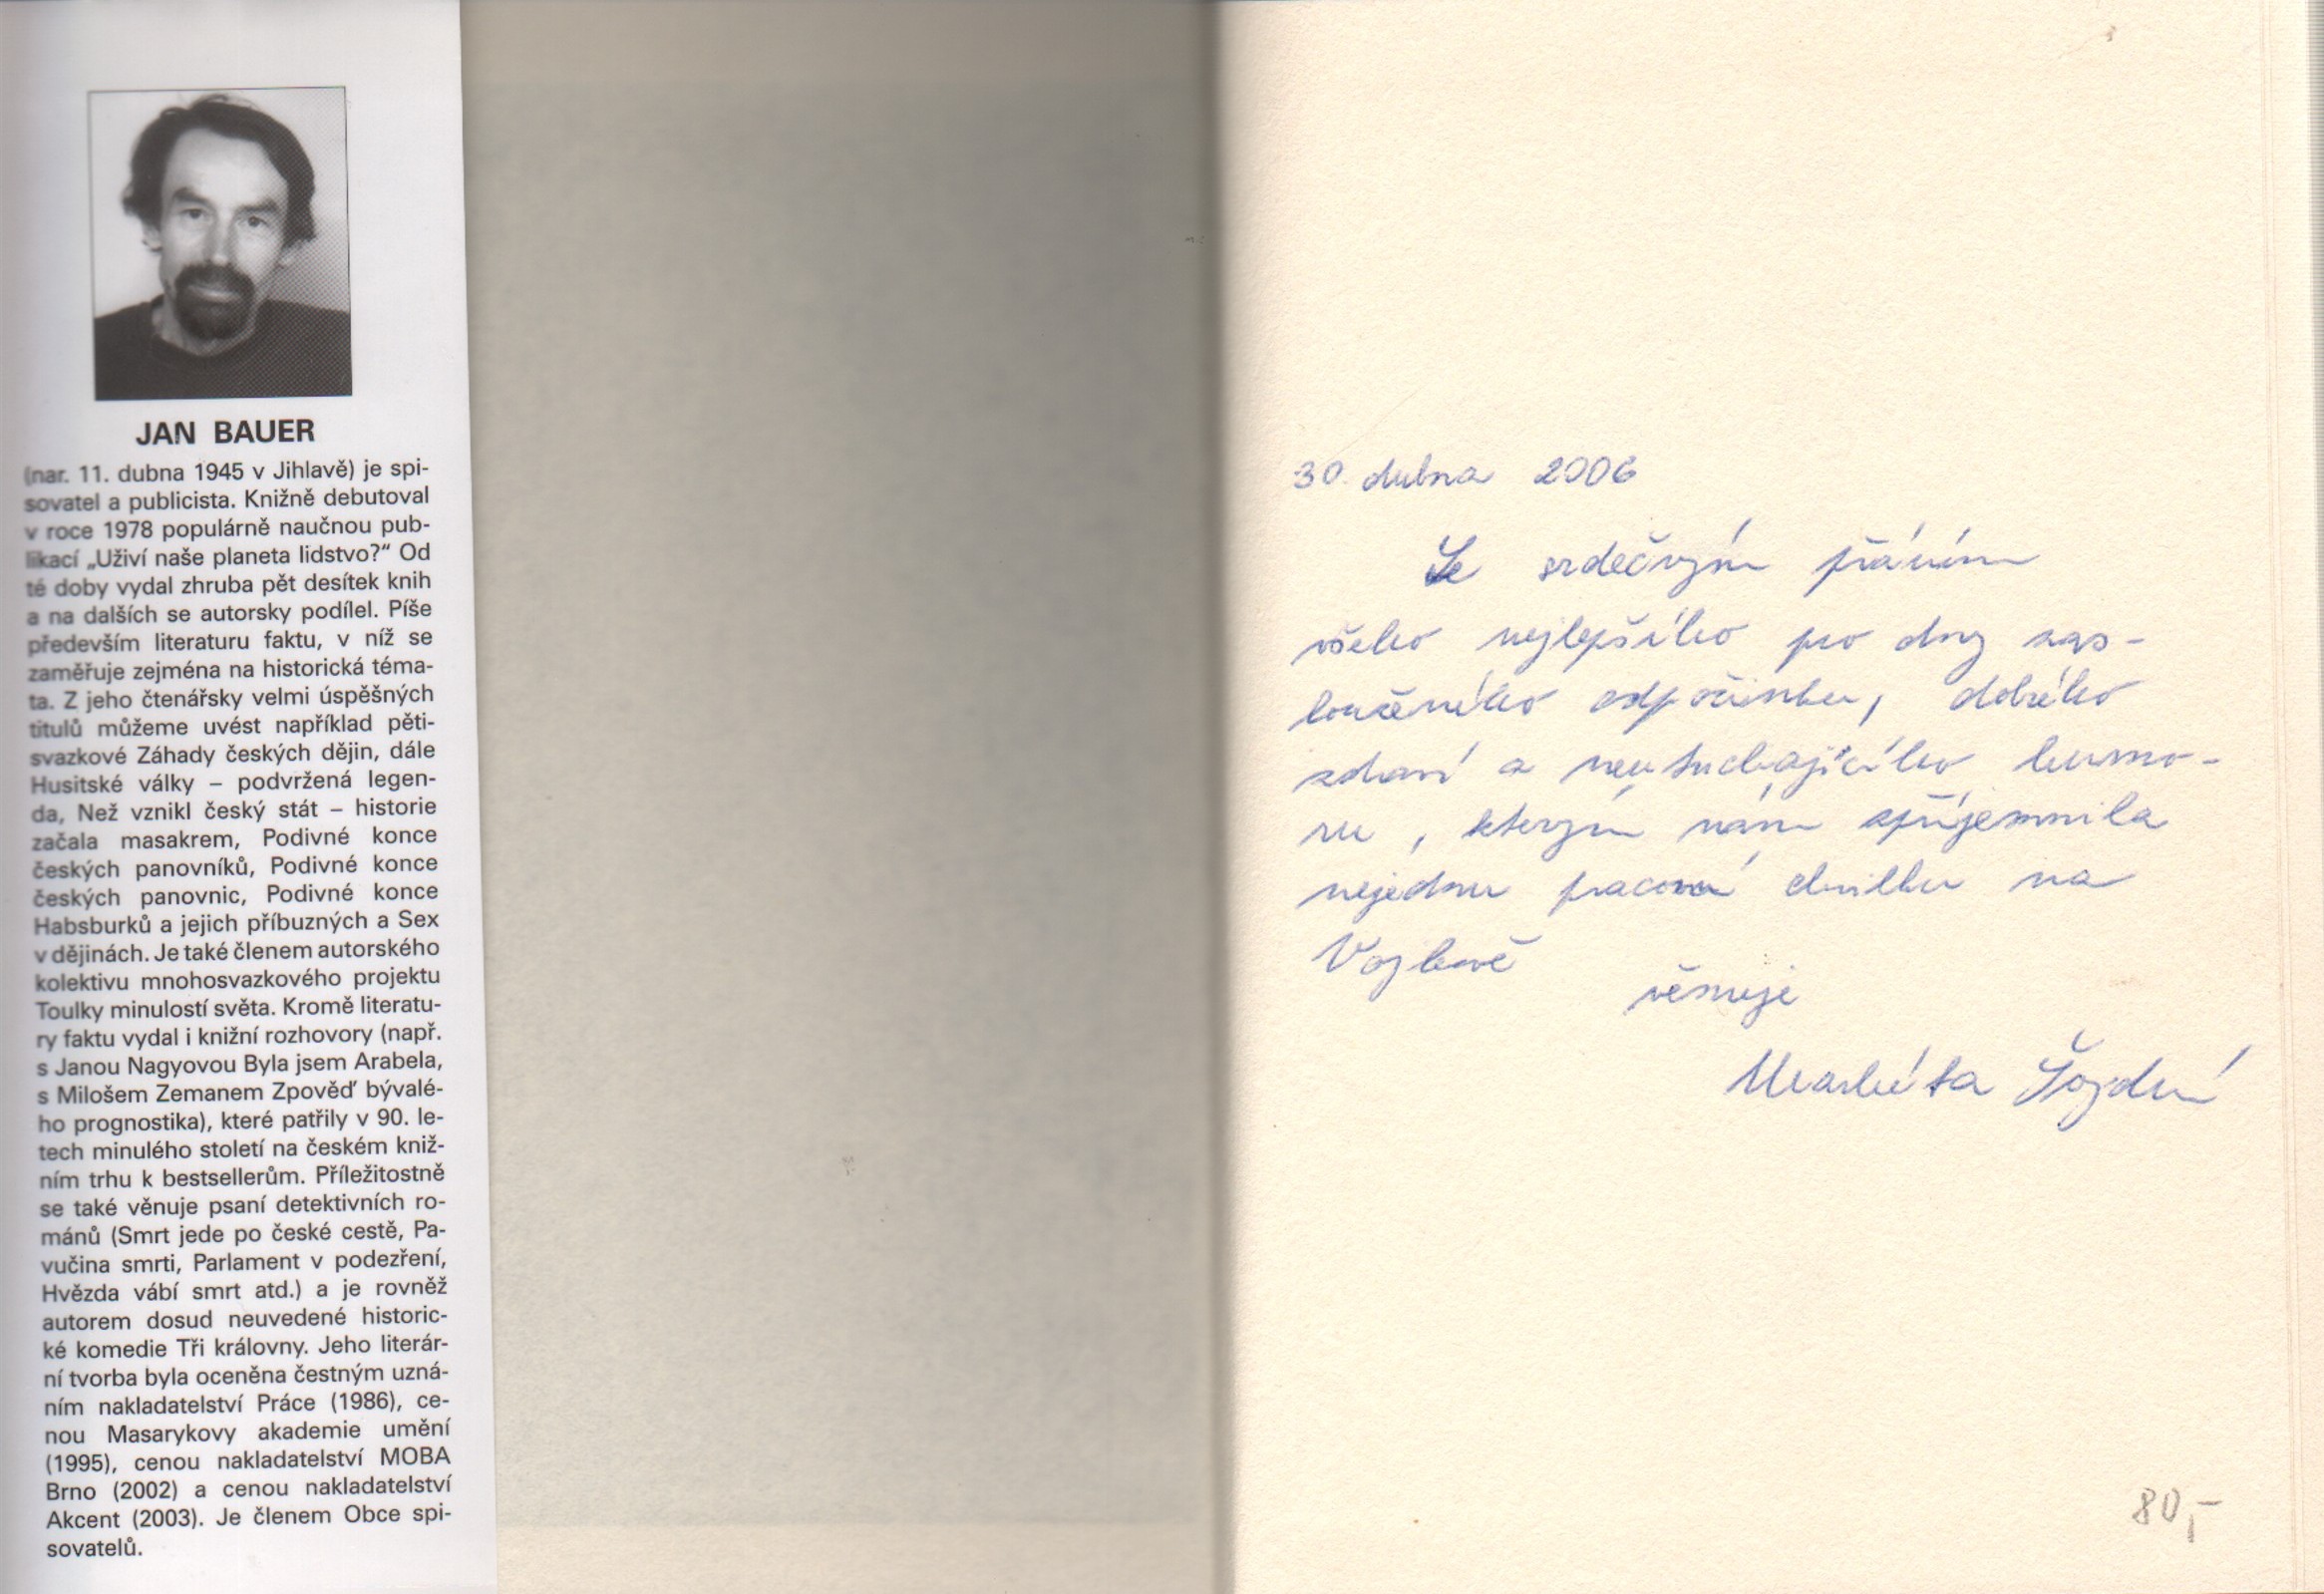 JAN BAUER
(nar. 11. dubna 1945 v Jihlavě) je spi-
sovatel a publicista. Knižně debutoval
v roce 1978 populárně naučnou pub-
likací „Uživí naše planeta lidstvo?“ Od
té doby vydal zhruba pět desítek knih
a na dalších se autorsky podílel. Píše
především literaturu faktu, v níž se
zaměřuje zejména na historická téma-
ta. Z jeho čtenářsky velmi úspěšných
titulů můžeme uvést například pěti-
svazkové Záhady českých dějin, dále
Husitské války – podvržená legen-
da, Než vznikl český stát – historie
začala masakrem, Podivné konce
českých panovníků, Podivné konce
českých panovnic, Podivné konce
Habsburků a jejich příbuzných a Sex
v dějinách. Je také členem autorského
kolektivu mnohosvazkového projektu
Toulky minulostí světa. Kromě literatu-
ry faktu vydal i knižní rozhovory (např.
s Janou Nagyovou Byla jsem Arabela,
s Milošem Zemanem Zpověď bývalé-
ho prognostika), které patřily v 90. le-
tech minulého století na českém kniž-
ním trhu k bestsellerům. Příležitostně
se také věnuje psaní detektivních ro-
mánů (Smrt jede po české cestě, Pa-
vučina smrti, Parlament v podezření,
Hvězda vábí smrt atd.) a je rovněž
autorem dosud neuvedené historic-
ké komedie Tři královny. Jeho literár-
ní tvorba byla oceněna čestným uzná-
ním nakladatelství Práce (1986), ce-
nou Masarykovy akademie umění
(1995), cenou nakladatelství MOBA
Brno (2002) a cenou nakladatelství
Akcent (2003). Je členem Obce spi-
sovatelů.
30. dubna 2006
Se srdečným přáním
všeho nejlepšího pro dny zas-
louženého odpočinku, dobrého
zdraví a neutuchajícího humo-
ru, kterým nám zpříjemnila
nejednu pracovní chvilku na
věnuje
Markéta
80,-